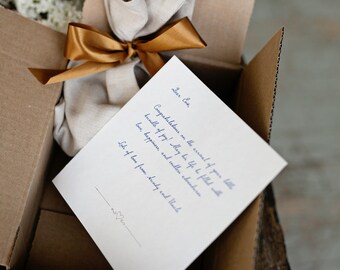 Dear Eve,
Congratulations on the arrival of your little
bundle of joy! May his life be filled with
love, happiness, and endless adventures.
Lots of love from, and